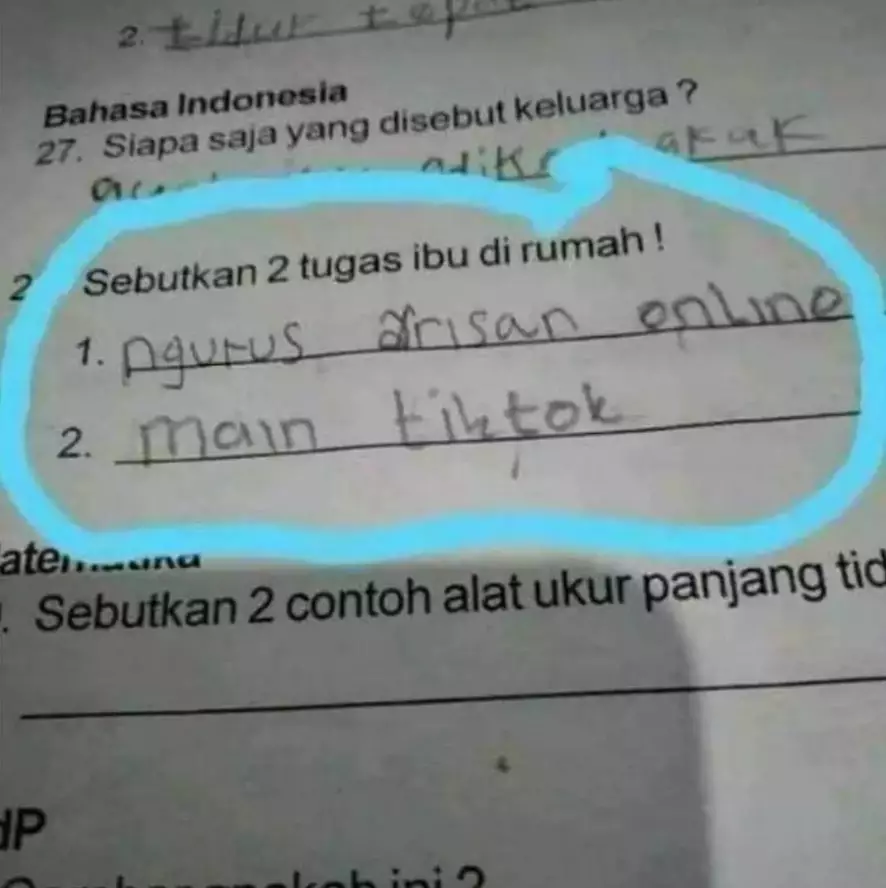 2. tidur
Bahasa Indonesia
27. Siapa saja yang disebut keluarga ?
adik kakak
2 Sebutkan 2 tugas ibu di rumah !
1. ngurus arisan online
2. main tiktok
. Sebutkan 2 contoh alat ukur panjang tid
ini ?